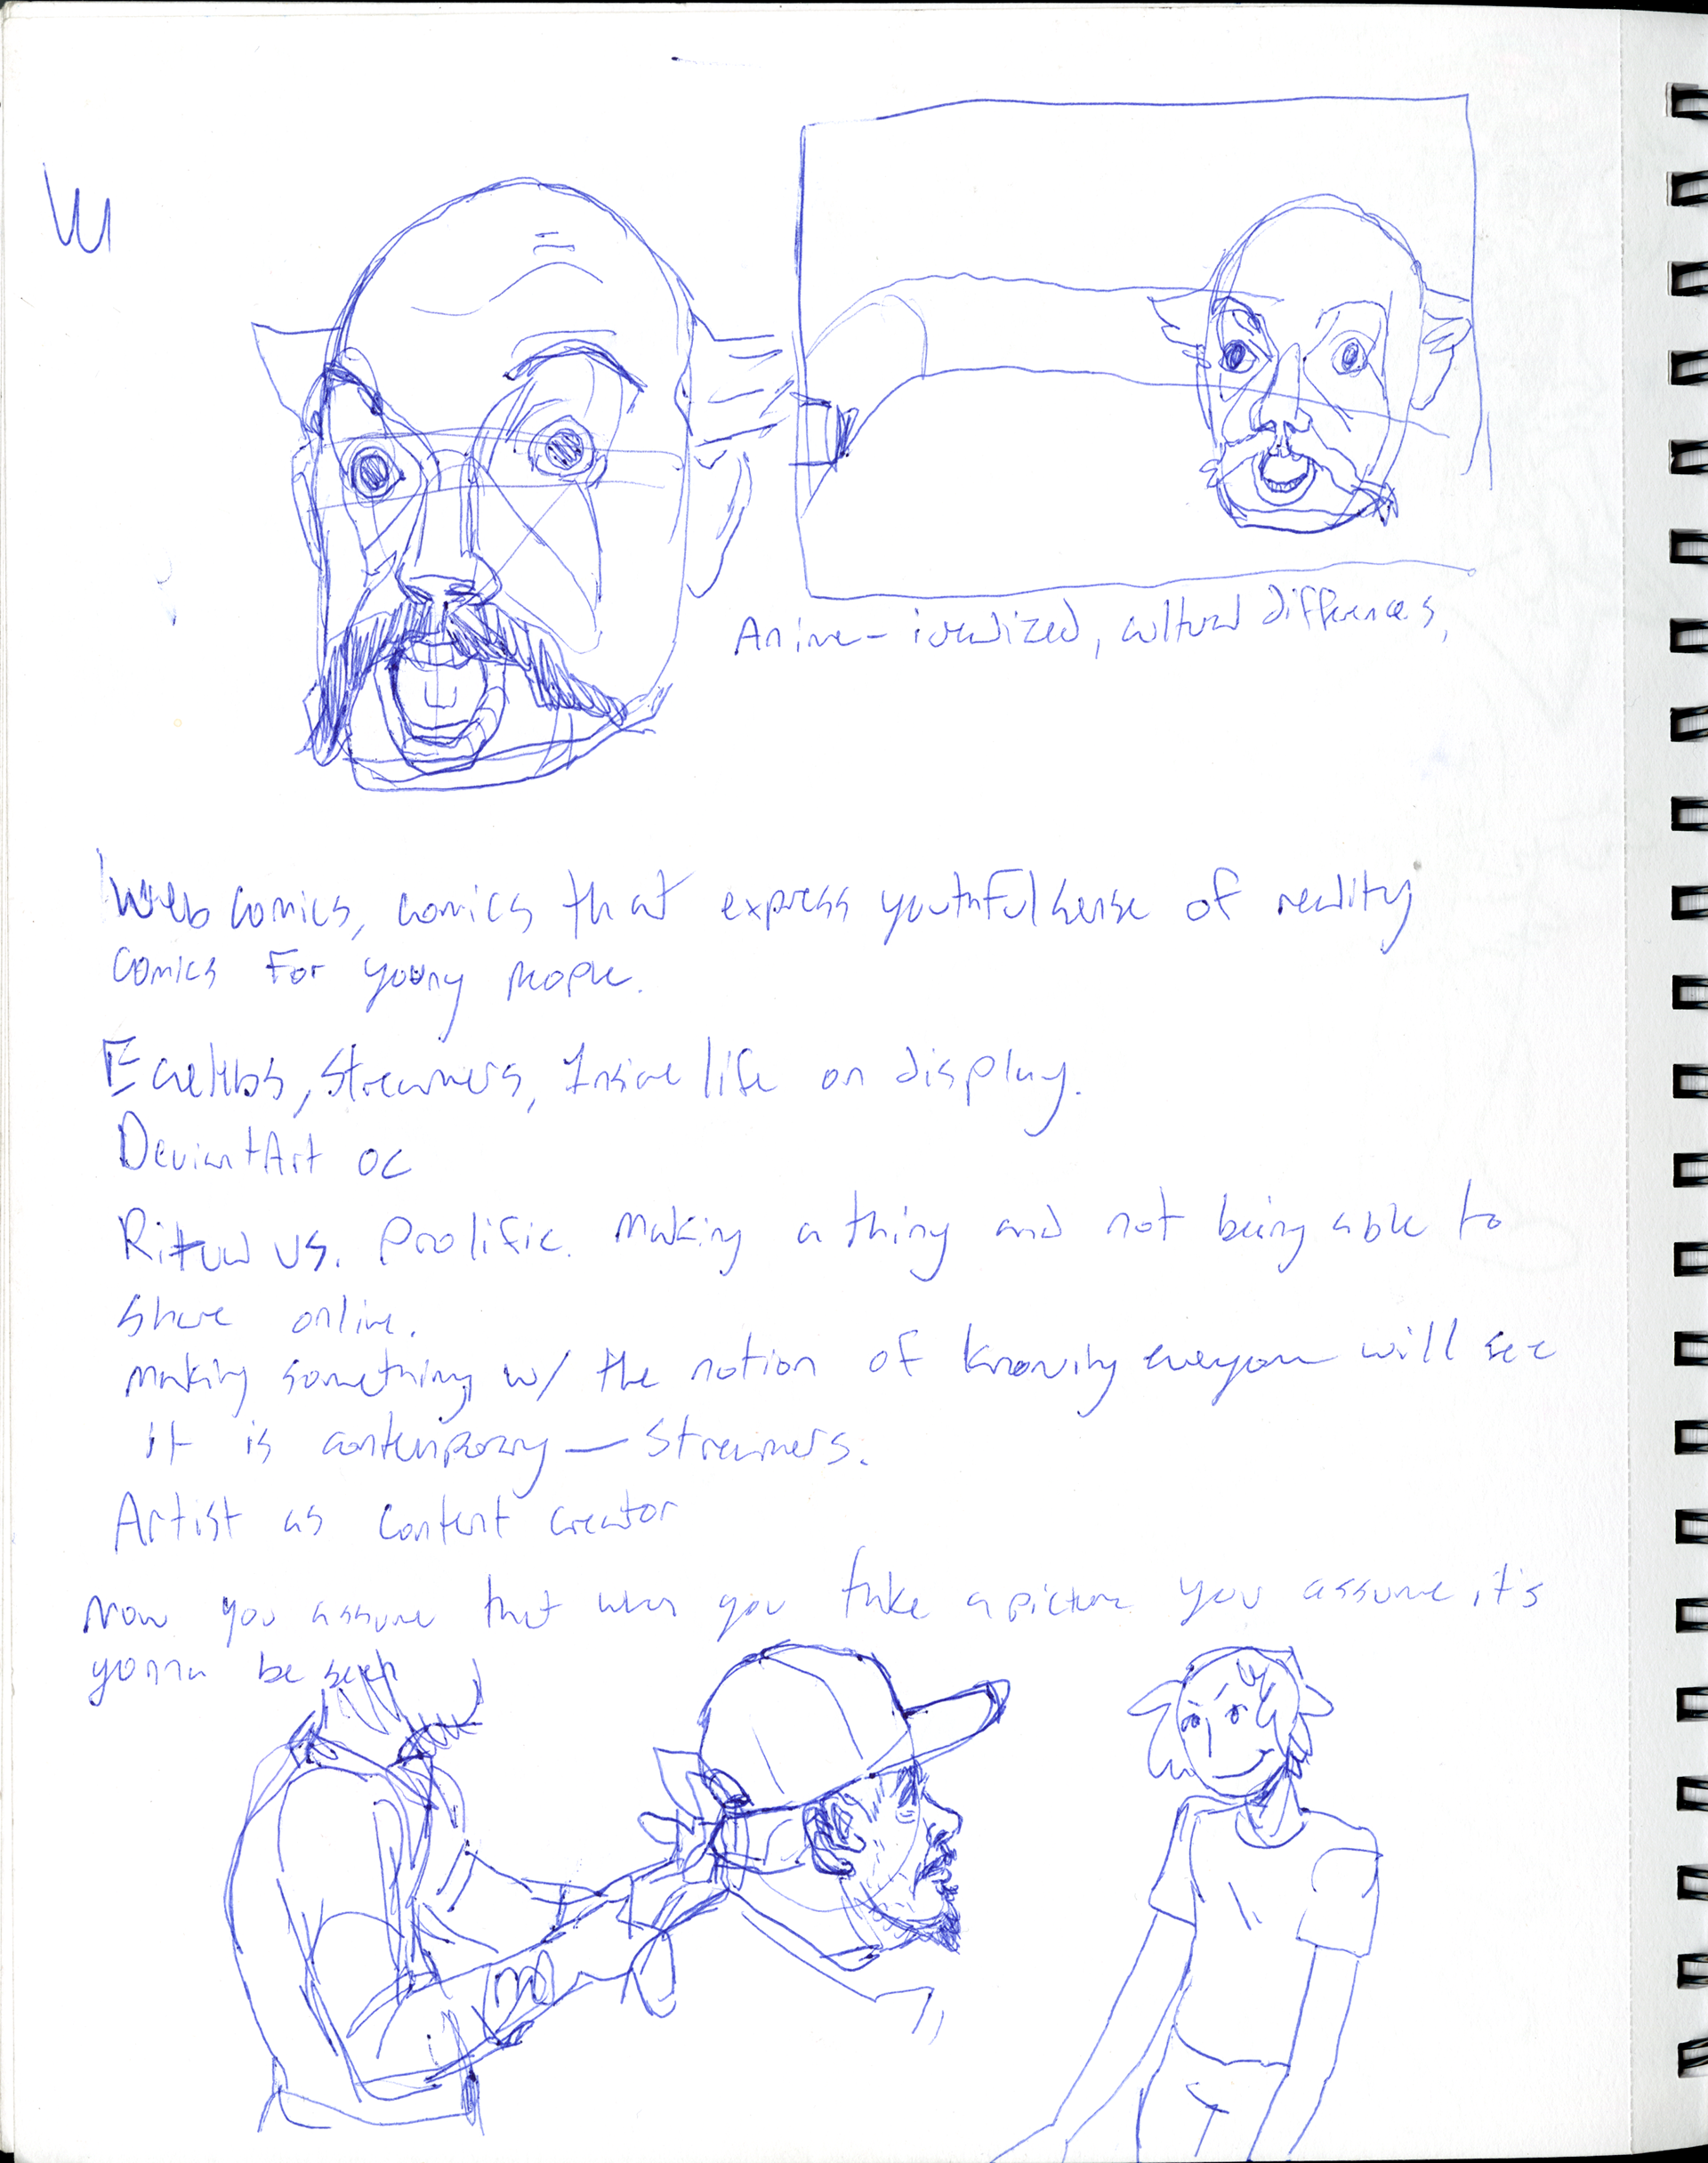 Anime - idealized, cultural differences,
Web comics, comics that express youthful sense of reality
comics for young people.
E celebs, streamers, Inside life on display.
DeviantArt OC
Ritual vs. Prolific. Making a thing and not being able to
share online.
Making something w/ the notion of knowing everyone will see
it is contemporary — streamers.
Artist as content creator
Now you assume that when you take a picture you assume it's
gonna be seen